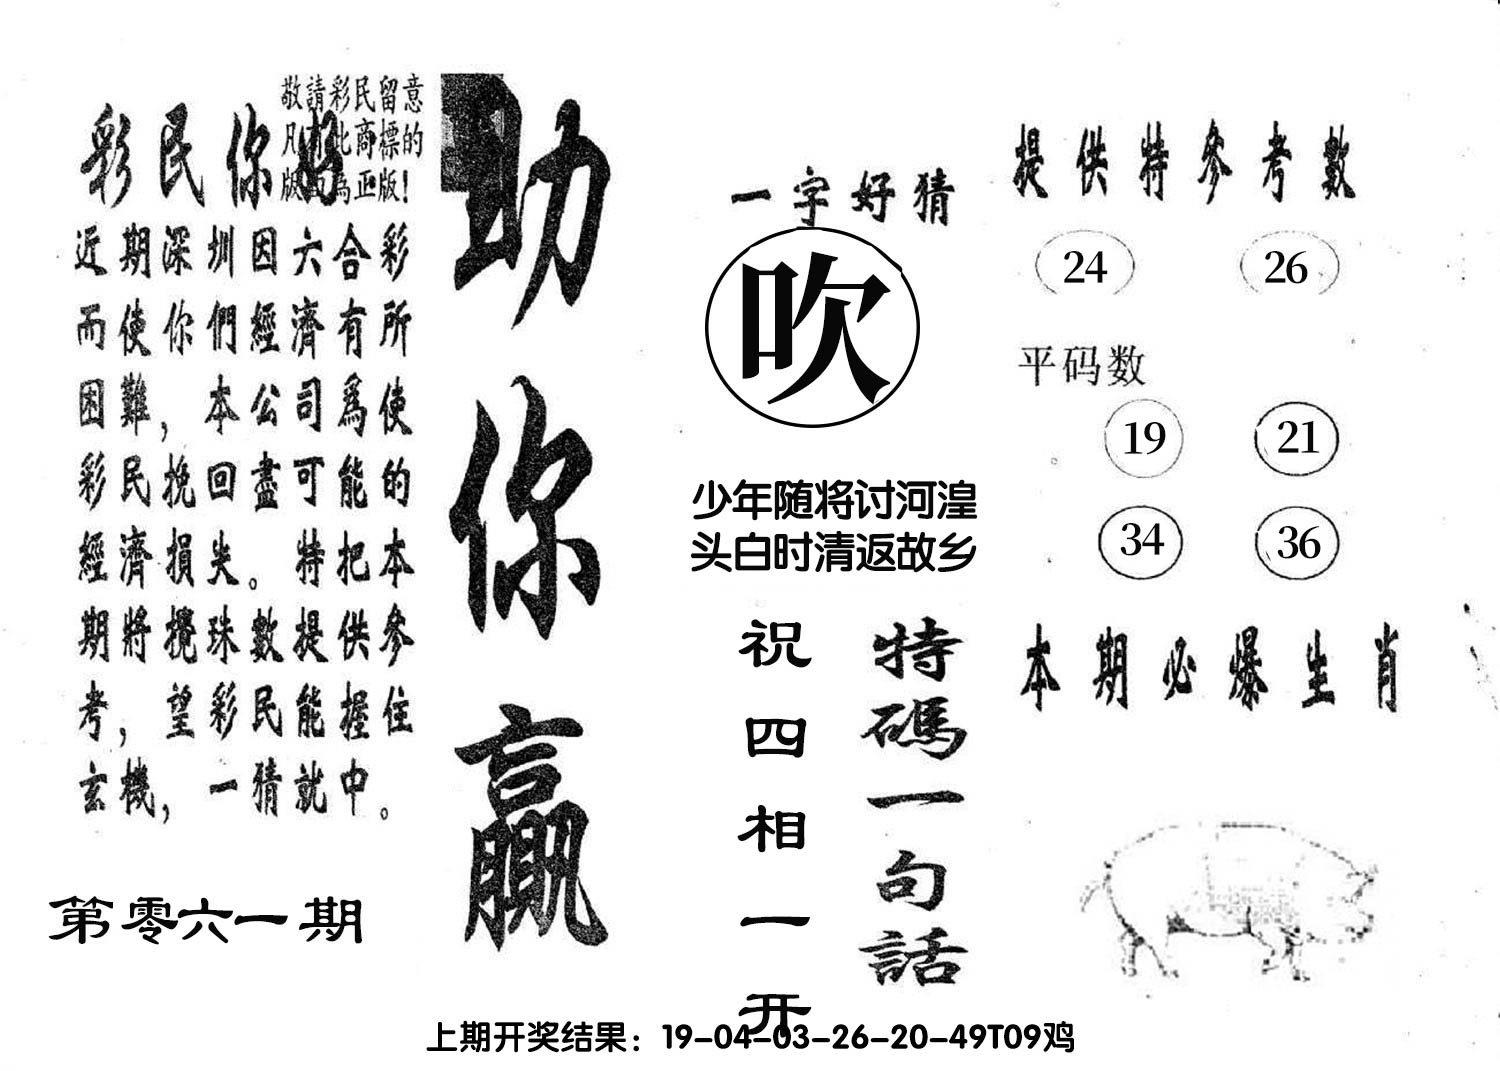 敬請彩民留意
凡有此商標的
版面為正版!
彩民你好
近期深圳因六合彩
而使你們經濟有所
困難，本公司爲使
彩民挽回盡可能的
經濟損失。特把本
期將攪珠數提供參
考，望彩民能握住
玄機，一猜就中。
第零六一期
助你贏
一字好猜
吹
少年随将讨河湟
头白时清返故乡
特碼一句話
祝四相一开
提供特参考數
24 26
平码数
19 21
34 36
本期必爆生肖
上期开奖结果：19-04-03-26-20-49T09鸡